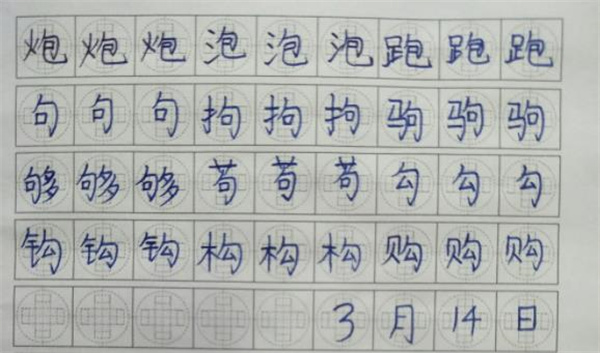 炮炮炮泡泡泡跑跑跑
句句句拘拘拘驹驹驹
够够够苟苟苟勾勾勾
钩钩钩构构构购购购
3月14日